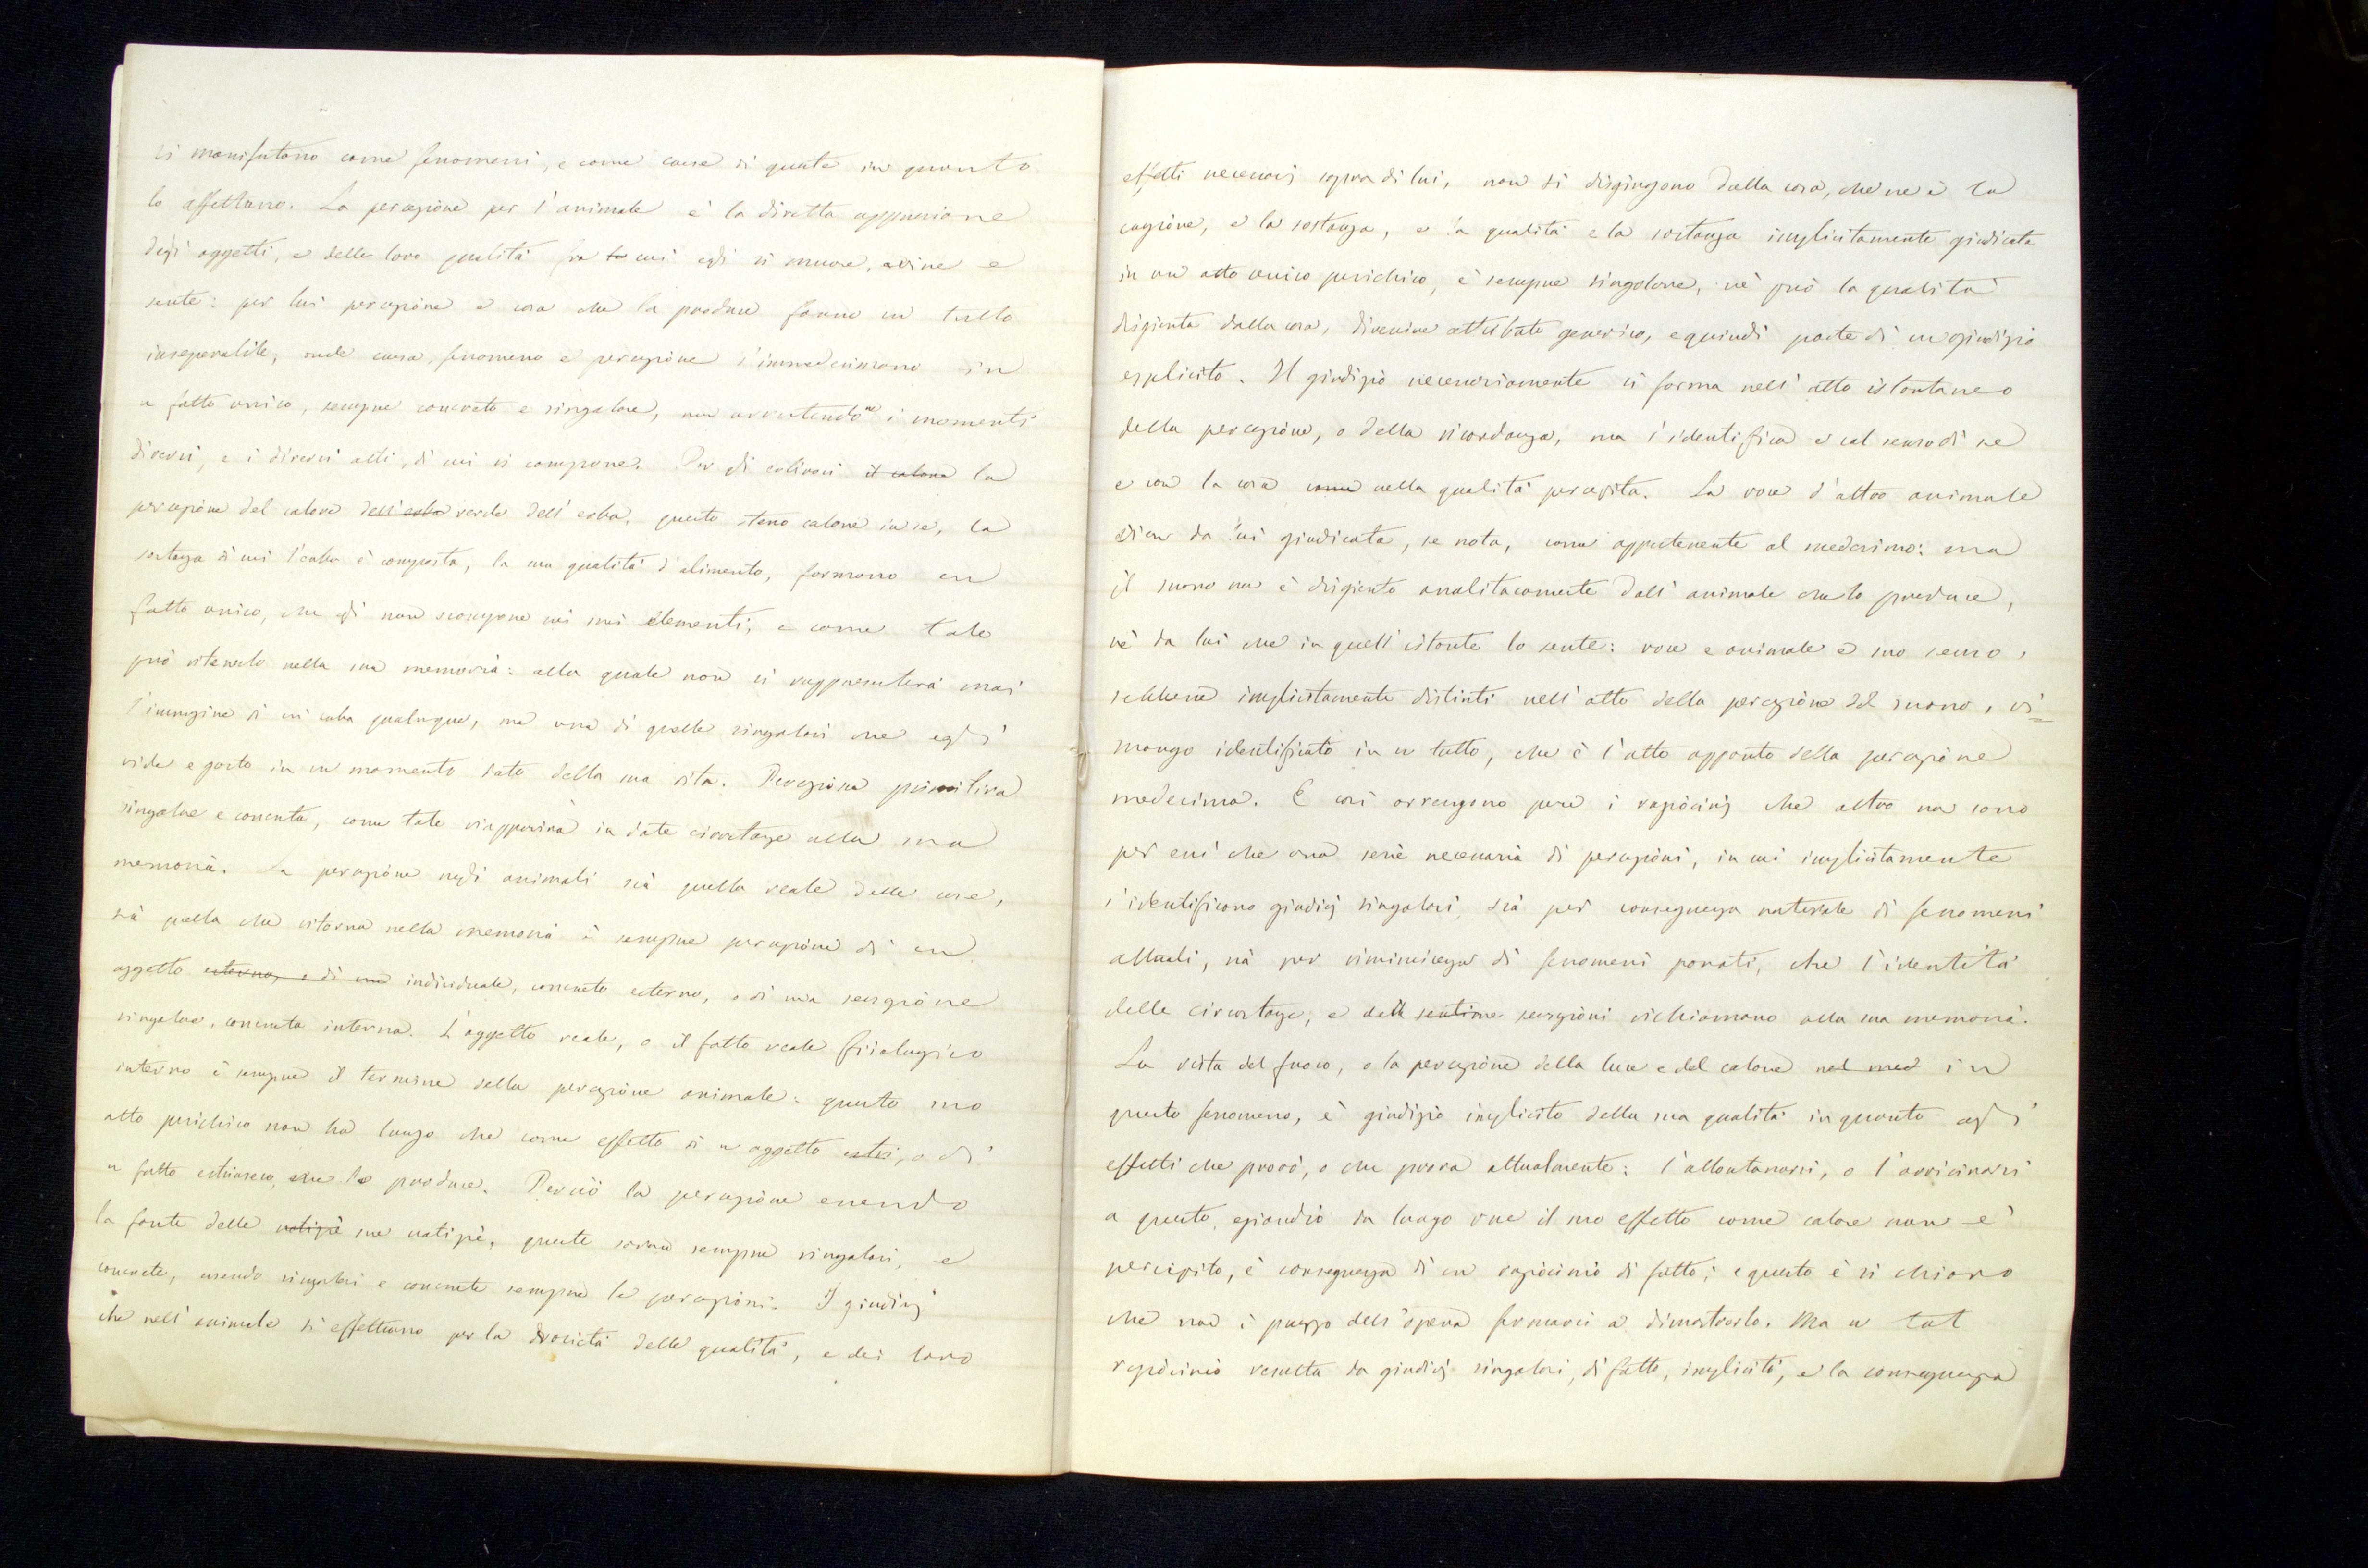 si manifestano come fenomeni, e come cause di queste in quanto
lo affettano. La percezione per l'animale è la diretta apprensione
degli oggetti, e delle loro qualità fra cui egli si muove, avine e
sente: per lui percezione e cosa che la produce fanno un tutto
inseparabile, onde causa, fenomeno e percezione s'immedesimano in
u fatto unico, sempre concreto e singolare, non avvertendone i momenti
diversi, e i diversi atti, di cui si compone. Per gli erbivori il calore la
percezione del calore dell'erba verde dell'erba, questo stesso calore in se, la
sostanza di cui l'erba è composta, la sua qualità d'alimento, formano un
fatto unico, che egli non scompone nei suoi elementi, e come tale
può ritenerlo nella sua memoria: alla quale non si rappresenterà mai
l'immagine di un'erba qualunque, ma una di quelle singolari che egli
vide e gustò in un momento dato della sua vita. Percezione primitiva
singolare e concreta, come tale riapparirà in date circostanze alla sua
memoria. La percezione negli animali sia quella reale delle cose,
sia quella che ritorna nella memoria è sempre percezione di un
oggetto esterno, e di una individuale, concreto esterno, o di una sensazione
singolare, concreta interna. L'oggetto reale, o il fatto reale fisiologico
interno è sempre il termine della percezione animale: questo suo
atto psichico non ha luogo che come effetto di u oggetto , o di
u fatto estrinseco, che lo produce. Perciò la percezione essendo
la fonte delle notizie sue notizie, queste saranno sempre singolari, e
concrete, essendo singolari e concrete sempre le percezioni. I giudizj
che nell'animale si effettuano per la diversità delle qualità, e dei loro
effetti necessarj sopra di lui, non si disgiungono dalla cosa, che ne è la
cagione, e la sostanza, e la qualità e la sostanza implicitamente giudicata
in un atto unico psichico, è sempre singolare, nè può la qualità
disgiunta dalla cosa, divenire attributo generico, e quindi parte di un giudizio
esplicito. Il giudizio necessariamente si forma nell'atto istantaneo
della percezione, o della ricordanza, ma s'identifica e col senso di se
e con la cosa come nella qualità percepita. La voce d'altro animale
vien da lui giudicata, se nota, come appartenente al medesimo: ma
il suono non è disgiunto analitacamente dall'animale che lo produce,
nè da lui che in quell'istante lo sente: voce e animale e suo senso,
sebbene implicitamente distinti nell'atto della percezione del suono, ri=
mango identificato in u tutto, che è l'atto appunto della percezione
medesima. E così avvengono pure i raziocinj che altro non sono
per essi che una serie necessaria di percezioni, in cui implicitamente
s'identificano giudizj singolari, sia per conseguenza naturale di fenomeni
attuali, sia per reminiscenza di fenomeni passati, che l'identità
delle circostanze, e delle sentione sensazioni richiamano alla sua memoria.
La vista del fuoco, o la percezione della luce e del calore nel med in
questo fenomeno, è giudizio implicito della sua qualità in quanto agli
effetti che provò, o che prova attualmente: l'allontanarsi, o l'avvicinarsi
a questo, eziandio da luogo ove il suo effetto come calore non è
percepito, è conseguenza di un raziocinio di fatto; e questo è sì chiaro
che non è prezzo dell'opera fermarci a dimostrarlo. Ma u tal
raziocinio resulta da giudizj singolari, di fatto, impliciti, e la conseguenza